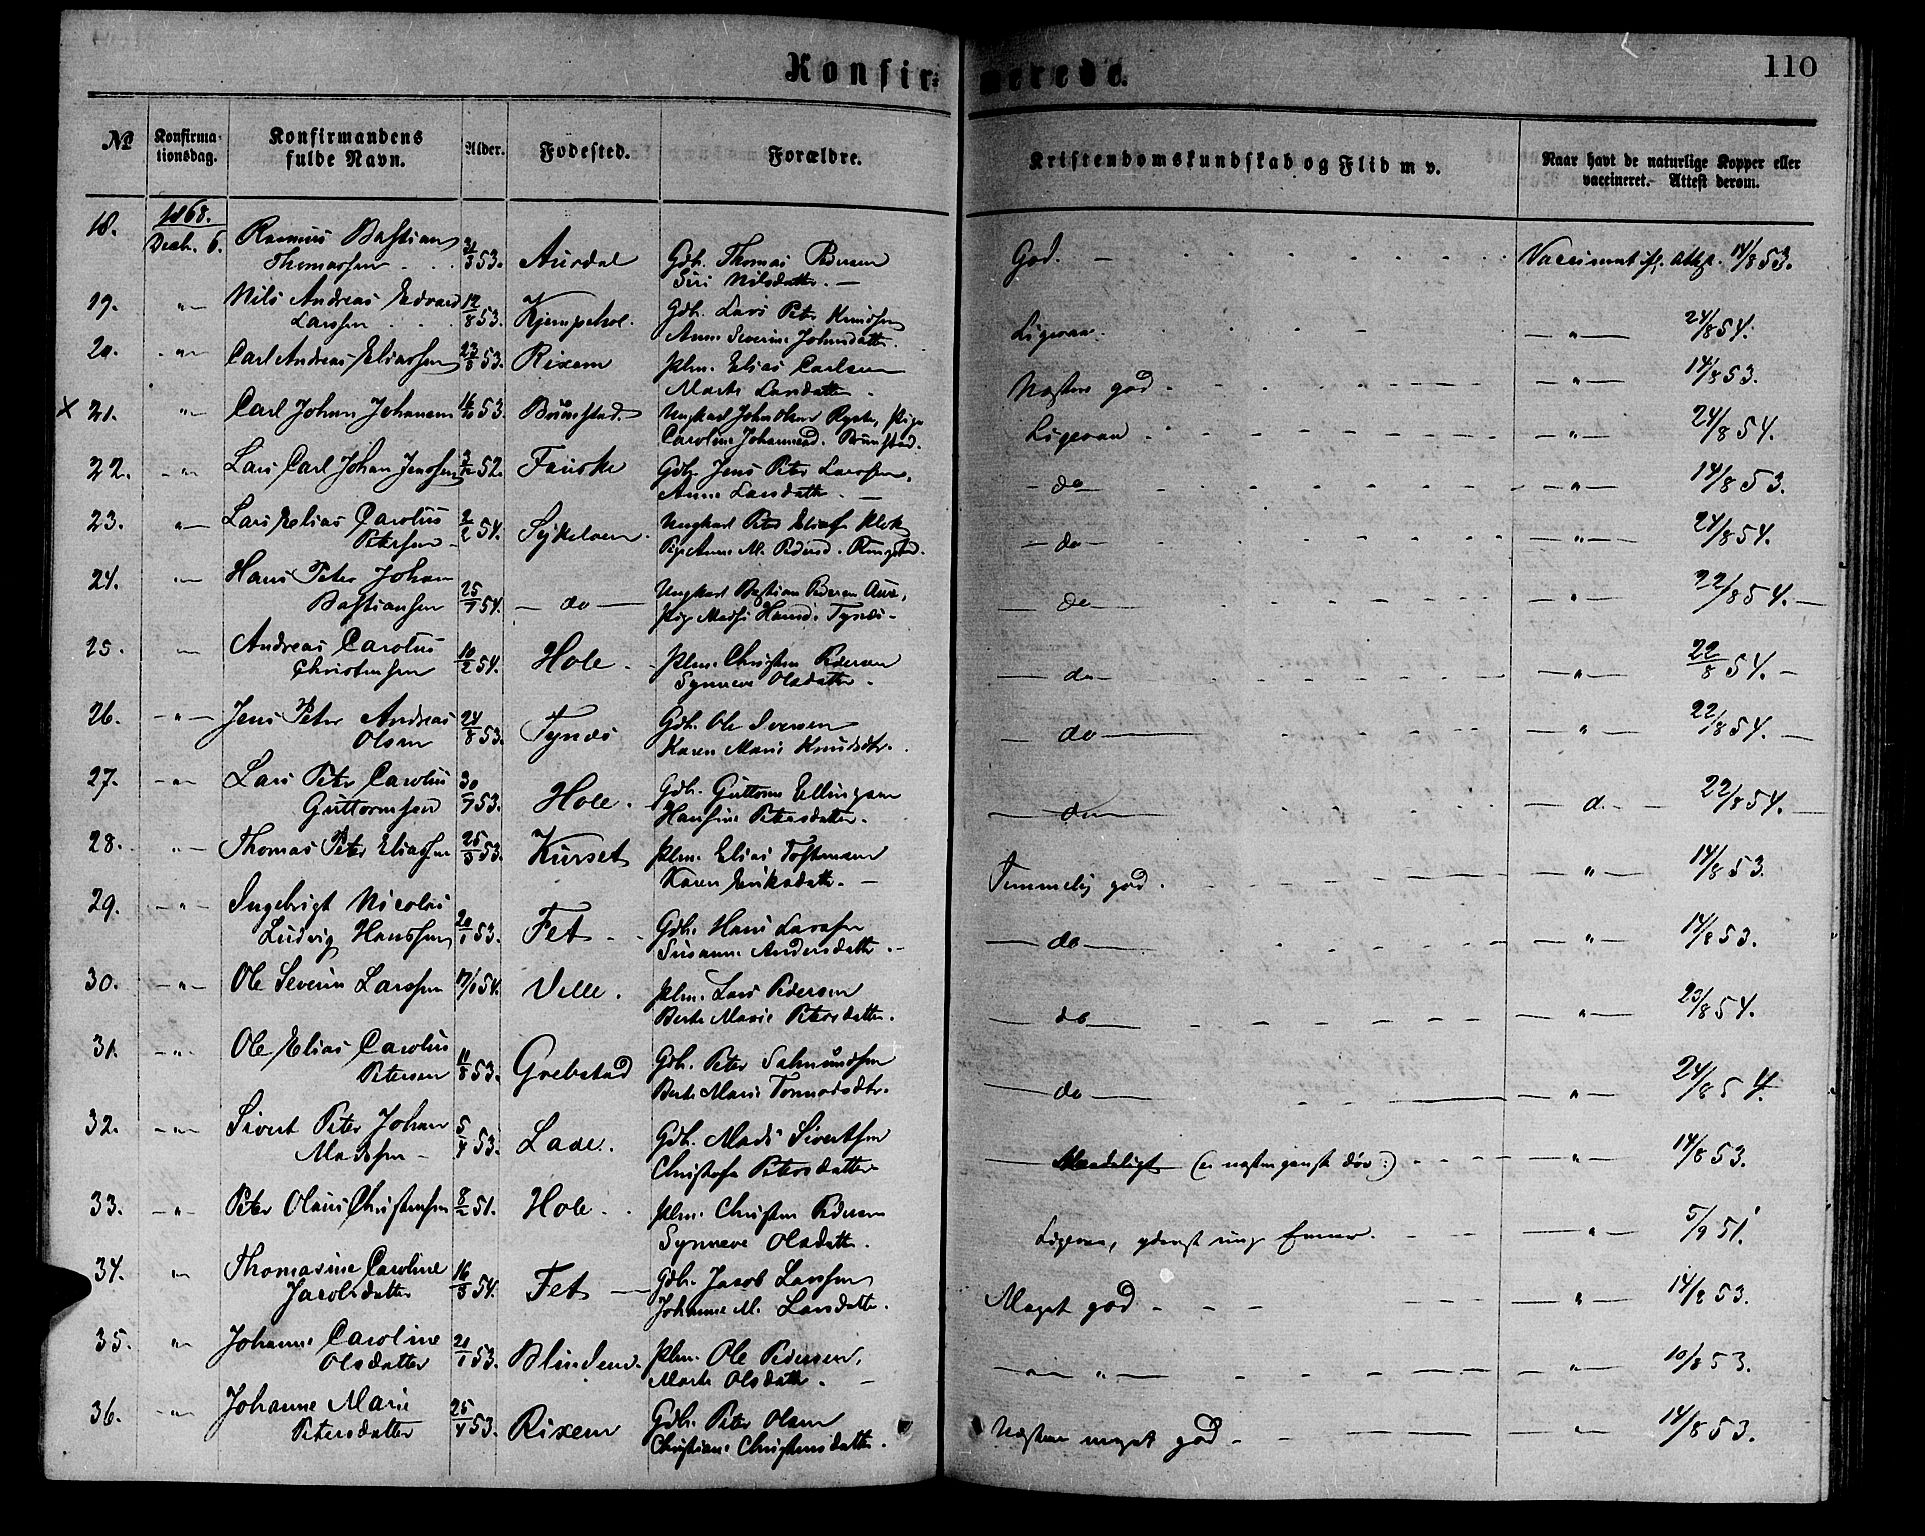 Konfir-
merede.
110
No
Konfirma-
tionsdag.
Konfirmandens
fulde Navn.
Alder.
Fødested.
Forældre.
Kristendomskundskab og Flid m v.
Naar havt de naturlige Kopper eller
vaccineret. Attest derom.
1868.
18. Decb. 6. Rasmus Bastian
Thomassen 53. Aursdal Gdb. Thomas Pedersen
Siri Nilsdatter.
God. 14/8 53.
19. " Nils Andreas Edvard
Larssen 12/8 53. Kjempehol. Gdb. Lars Peter Knudsen
Anne Severine Johnsdatter.
Ligesaa. " 24/8 54.
20. " Carl Andreas Eliassen 53. Rixem plm. Elias Carlsen
Marte Larsdatter.
Næsten god. " 14/8 53.
× 21. " Carl Johan Johansen 53. Brunstad. Ungkarl John Olsen Pige
Caroline Johannesd. Brunstad.
Ligesaa " 24/8 54.
22. " Lars Carl Johan Jenssen 52. Fauske Gdb. Jens Peter Larssen,
Anne Larsdatter.
do " 14/8 53.
23. " Lars Elias Carolus
Petersen 2/2 54. Sykelven. Ungkarl Peter
Pige Anne M. Pedersd.
do " 24/8 54.
24. " Hans Peter Johan
Bastiansen 25/1 54. do Ungkarl Bastian Pedersen Aure,
Pige Hansd. Tynes
do " 22/8 54.
25. " Andreas Carolus
Christensen 10/2 54. Hole. plm. Christen Pedersen
Synneve Olsdatter.
do " 22/8 54.
26. " Jens Peter Andreas
Olsen 24/8 53. Tynes Gdb. Ole Iversen
Karen Marie Knudsdtr.
do " 22/8 54.
27. " Lars Peter Carolus
Guttormsen 30/7 53. Hole. Gdb. Guttorm Ellingsen
Hansine Petersdatter.
do 22/8 54.
28. " Thomas Peter Eliassen 53. Kurset plm. Elias Tostensen
Karen Eriksdatter.
Temmelig god. " 14/8 53.
29. " Ingebrigt Nicolai
Ludvig Hanssen 20/1 53. Fet Gdb. Hans Larssen
Susanne Andersdatter.
do " 14/8 53.
30. " Ole Severin Larssen 54. Velle. plm. Lars Pedersen
Berte Marie Petersdatter.
do " 23/8 54.
31. " Ole Elias Carolus
Petersen 11/8 53. Grebstad Gdb. Peter Salmundsen
Berte Marie Tormodsdtr.
do " 24/8 54.
32. " Sivert Peter Johan
Madssen 5/4 53. Lade. Gdb. Mads Sivertsen
Petersdatter
Maadeligt (er næsten ganske døv:) " 14/8 53.
33. " Peter Olaus Christensen 8/2 51. Hole. plm. Christen Pedersen
Synneve Olsdatter.
Ligesaa, " 5/9 51.
34. " Thomasine Caroline
Jacobsdatter 54. Fet Gdb. Jacob Larssen
Johanne M. Larsdatter.
Meget god " 14/8 53.
35. " Johanne Caroline
Olsdatter 53. Blindem. plm. Ole Pedersen,
Marte Olsdatter.
" " 10/8 53.
36. " Johanne Marie
Petersdatter 25/4 53. Rixem Gdb. Peter Olsen
Christiane Christensdatter.
Næsten meget god " 14/8 53.